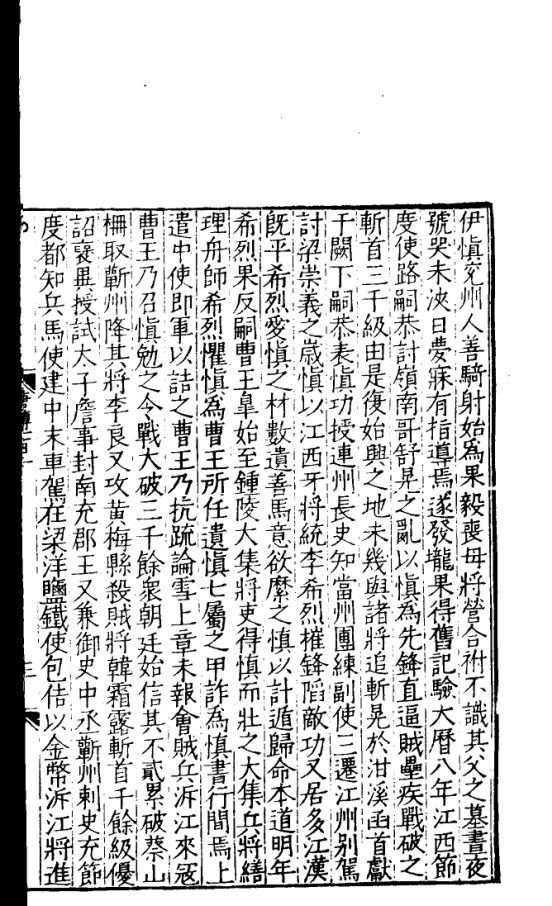 伊慎兗州人善騎射始爲果毅喪母將營合祔不識其父之墓晝夜
號哭未浹日夢寐有指導焉遂發壠果得舊記驗大曆八年江西節
度使路嗣恭討嶺南哥舒晃之亂以慎為先鋒直逼賊壘疾戰破之
斬首三千級由是復始興之地未幾與諸將追斬晃於泔溪函首獻
于闕下嗣恭表慎功授連州長史知當州團練副使三遷江州别駕
討梁崇義之嵗慎以江西牙將統李希烈摧鋒陷敵功又居多江漢
旣平希烈愛慎之材數遺善馬意欲縻之慎以計遁歸命本道明年
希烈果反嗣曹王臯始至鍾陵大集將吏得慎而壯之大集兵將繕
理舟師希烈懼慎爲曹王所任遺慎七屬之甲詐為慎書行間焉上
遣中使即軍以詰之曹王乃抗疏論雪上章未報會賊兵泝江來宼
曹王乃召慎勉之令戰大破三千餘衆朝廷始信其不貳累破蔡山
柵取蘄州降其將李良又攻黃梅縣殺賊將韓霜露斬首千餘級優
詔褒異授試太子詹事封南充郡王又兼御史中丞蘄州刺史充節
度都知兵馬使建中末車駕在梁洋鹽鐵使包佶以金幣泝江將進
三